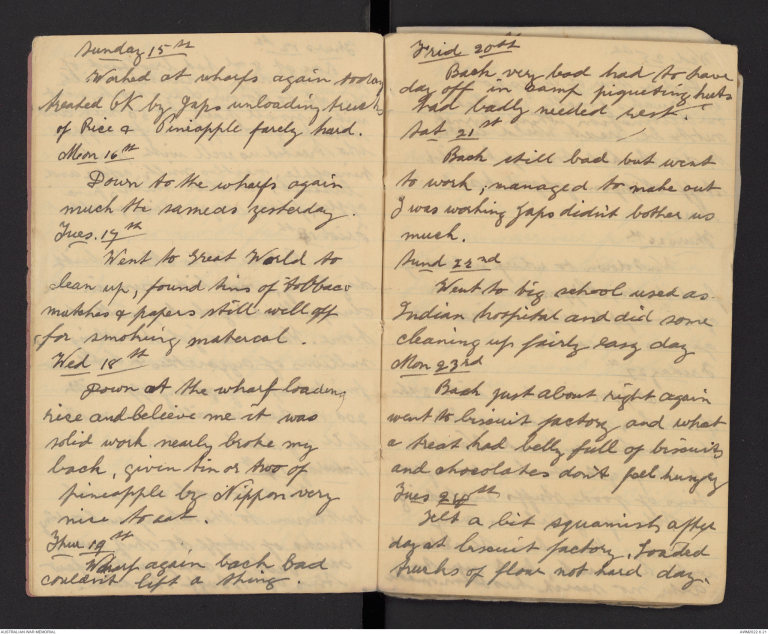 Sunday 15th
Worked at wharfs again today
treated OK by Japs unloading trucks
of Rice & Pineapple farely hard.
Mon 16th
Down to the wharfs again
much the sameas yesterday.
Tues. 17th
Went to Great World to
clean up, found tins of Tobbaco
matches & papers still well off
for smoking matereal.
Wed 18th
Down at the wharf loading
rice and believe me it was
solid work nearly broke my
back, given tin or two of
pineapple by Nippon very
nice to eat.
Thur 19th
Wharf again back bad
couldn't lift a thing.
Frid 20th
Back very bad had to have
day off in camp piqueting huts
had badly needed rest.
Sat 21st
Back still bad but went
to work, managed to make out
I was working Japs didn't bother us
much.
Sund 22nd
Went to big school used as
Indian hospital and did some
cleaning up fairly easy day
Mon 23rd
Back just about right again
went to biscuit factory and what
a treat had belly full of biscuits
and chocolates don't feel hungry
Tues 24th
Felt a bit squamish after
day at biscuit factory. Loaded
trucks of flour not hard day.
AUSTRALIAN WAR MEMORIAL